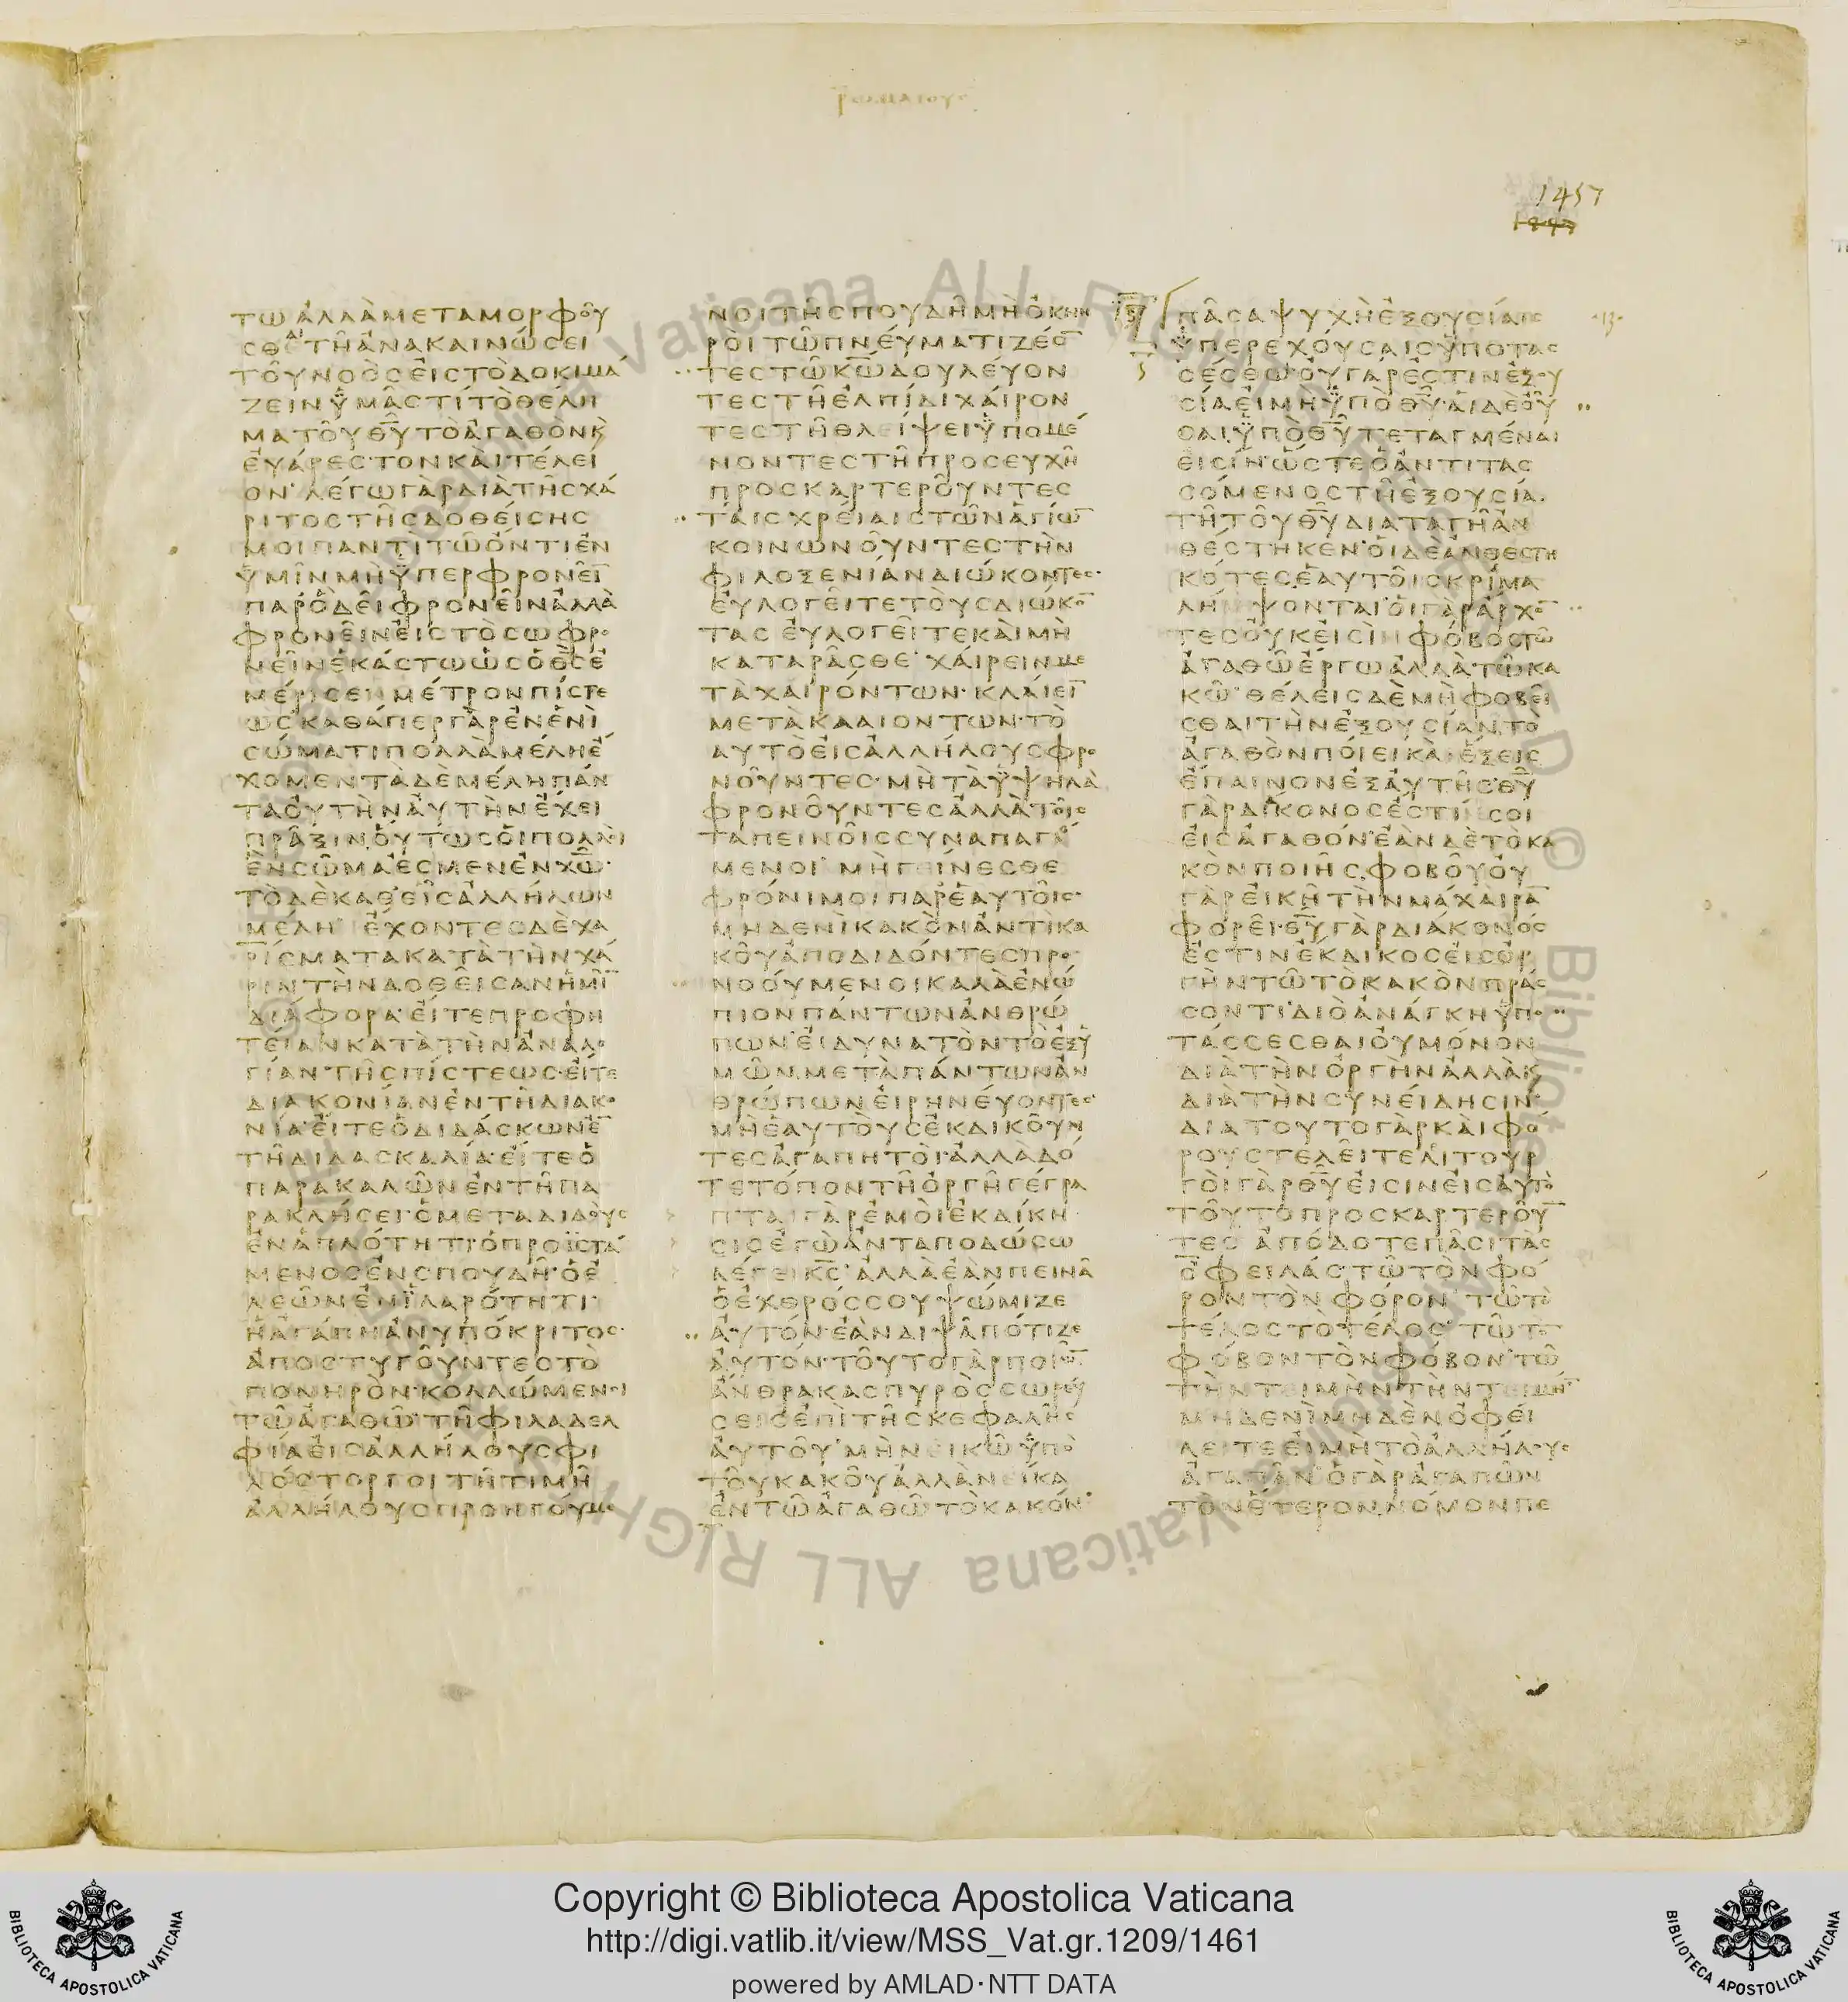 ῥωμαίους
1457
τωἀλλὰμεταμορφοῦ
σθετῆἀνακαινώσει
τοῦνοὸσεἰστὸδοκιμά
ζεινὑμᾶστίτὸθέλη
ματοῦθ̅υ̅τὸἀγαθὸνκ̀
εὐάρεστονκαὶτέλει
ον·λέγωγὰρδιὰτῆσχά
ριτοστῆσδοθείσησ
μοιπαντὶτῶὄντιἐν
ὑμῖνμὴὑπερφρονεῖ̅
παρὃδεῖφρονεῖνἀλλὰ
φρονεῖνεἰστὸσωφρο
νεῖνἑκάστωὡσὁθ̅σ̅ἐ
μέρισενμέτρονπίστε
ωσ·καθάπεργὰρἐνἑνὶ
σώματιπολλὰμέληἔ
χομεντὰδὲμέληπάν
ταοὐτὴναὐτὴνἔχει
πρᾶξινοὕτωσοἱπολλοὶ
ἓνσῶμάἐσμενἐνχ̅ω̅·
τὸδὲκαθεῖσἀλλήλων
μέλη ἔχοντεσδὲχα
ρίσματακατὰτὴνχά
ριντὴνδοθεῖσανἡμῖ̅
διάφορα·εἴτεπροφη
τείανκατὰτὴνἀναλο
γίαντῆσπίστεωσ·εἴτε
διακονίανἐντῆδιακο
νία·εἴτεὁδιδάσκωνἐ̅
τῆδιδασκαλία·εἴτεὁ
παρακαλῶνἐντῆπα
ρακλήσει·ὁμεταδιδοὺσ
ἐνἁπλότητι·ὁπροϊστά
μενοσἐνσπουδῆ·ὁἐ
λεῶνἐνἱλαρότητι·
ἡἀγάπηἀνυπόκριτοσ·
ἀποστυγοῦντεστὸ
πονηρὸν·κολλώμενοι
τῶἀγαθῶ·τῆφιλαδελ
φίαεἰσἀλλήλουσφι
λόστοργοιτῆτιμῆ
ἀλλήλουσπροηγούμε
νοιτῆσπουδῆμὴὀκνη
ροὶτῶπνεύματιζέο̅
τεστῶκ̅ω̅δουλεύον
τεστῆἐλπίδιχαίρον
τεστῆθλείψειὑπομέ
νοντεστῆπροσευχῆ
προσκαρτεροῦντεσ
ταῖσχρείαιστῶνἁγίω̅
κοινωνοῦντεστὴν
φιλοξενίανδιώκοντεσ·
εὐλογεῖτετοὺσδιώκο̅
τασ εὐλογεῖτεκαὶμὴ
καταρᾶσθε·χαίρεινμε
τὰχαιρόντων·κλαίει̅
μετὰκλαιόντων·τὸ
αὐτὸεἰσἀλλήλουσφρο
νοῦντεσ·μὴτὰὑψηλὰ
φρονοῦντεσἀλλὰτοῖσ
ταπεινοῖσσυναπαγό
μενοι μὴγείνεσθε
φρόνιμοιπαρἑαυτοῖσ·
μηδενὶκακὸνἀντὶκα
κοῦἀποδιδόντεσπρο
νοούμενοικαλὰἐνώ
πιονπάντωνἀνθρώ
πων·εἰδυνατὸντὸἐξὑ
μῶν·μετὰπάντωνἀν
θρώπωνεἰρηνεύοντεσ·
μὴἑαυτοὺσἐκδικοῦν
τεσἀγαπητοὶ·ἀλλὰδό
τετόποντῆὀργῆγέγρα
πταιγὰρἐμοὶἐκδίκη
σισἐγὼἀνταποδώσω
λέγεικ̅σ̅·ἀλλὰἐὰνπεινᾶ
ὁἐχθρόσσουψώμιζε
αὐτόν·ἐὰνδιψᾶπότιζε
αὐτόν·τοῦτογὰρποιῶ̅
ἄνθρακασπυρὸσσωρεύ
σεισἐπὶτῆσκεφαλῆσ
αὐτοῦ·μὴνεικῶὑπὸ
τοῦκακοῦἀλλὰνείκα
ἐντῶἀγαθῶτὸκακόν·
πᾶσαψυχὴἐξουσίαισ
ὑπερεχούσαισὑποτασ
σέσθω·οὐγάρἐστινἐξου
σίαεἰμὴὑπὸθ̅υ̅·αἱδὲοὖ
σαιὑπὸθ̅υ̅τεταγμέναι
εἰσίν·ὥστεὁἀντιτασ
σόμενοστῆἐξουσία
τῆτοῦθ̅υ̅διαταγῆἀν
θέστηκεν·οἱδὲἀνθεστη
κότεσἑαυτοῖσκρίμα
λήμψονται·οἱγὰρἄρχο̅
τεσοὐκεἰσὶνφόβοστῶ
ἀγαθῶἔργωἀλλὰτῶκα
κῶ·θέλεισδὲμὴφοβεῖ
σθαιτὴνἐξουσίαν·τὸ
ἀγαθὸνποίεικαὶἕξεισ
ἔπαινονἐξαὐτῆσ·θ̅υ̅
γὰρδιάκονόσἐστίνσοι
εἰσἀγαθόν·ἐὰνδὲτὸκα
κὸνποιῆσφοβοῦ·οὐ
γὰρεἰκῆτὴνμάχαιρα̅
φορεῖ·θ̅υ̅γὰρδιάκονόσ
ἐστινἔκδικοσεἰσὀρ
γὴντῶτὸκακὸνπράσ
σοντι·διὸἀνάγκηὑπο
τάσσεσθαιοὐμόνον
διὰτὴνὀργὴνἀλλὰκ̀
διὰτὴνσυνείδησιν·
διὰτοῦτογὰρκαὶφό
ρουστελεῖτελιτουρ
γοὶγὰρθ̅υ̅εἰσινεἰσαὐτὸ
τοῦτοπροσκαρτεροῦ̅
τεσ ἀπόδοτεπᾶσιτὰσ
ὀφειλάσ·τῶτὸνφό
ροντὸνφόρον τῶτὸ
τέλοστὸτέλοσ·τῶτὸ̅
φόβοντὸνφόβον·τῶ
τὴντειμὴντὴντειμήν
μηδενὶμηδὲνὀφεί
λετεεἰμὴτὸἀλλήλουσ
ἀγαπᾶν·ὁγὰρἀγαπῶν
τὸνἕτεροννόμονπε
Copyright © Biblioteca Apostolica Vaticana
http://digi.vatlib.it/view/MSS_Vat.gr.1209/1461
powered by AMLAD·NTT DATA
BIBLIOTECA APOSTOLICA VATICANA
BIBLIOTECA APOSTOLICA VATICANA